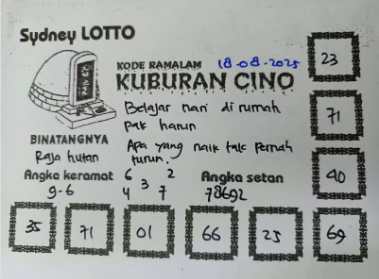 Sydney LOTTO
23
KODE RAMALAM 18-08-2025
KUBURAN CINO
Belajar nari di rumah
pak harun
71
Apa yang naik tak pernah
turun.
BINATANGNYA
Raja hutan
Angka keramat
9-6
6 2
3
4 7
Angka setan
78692
40
35
71
01
66
25
69